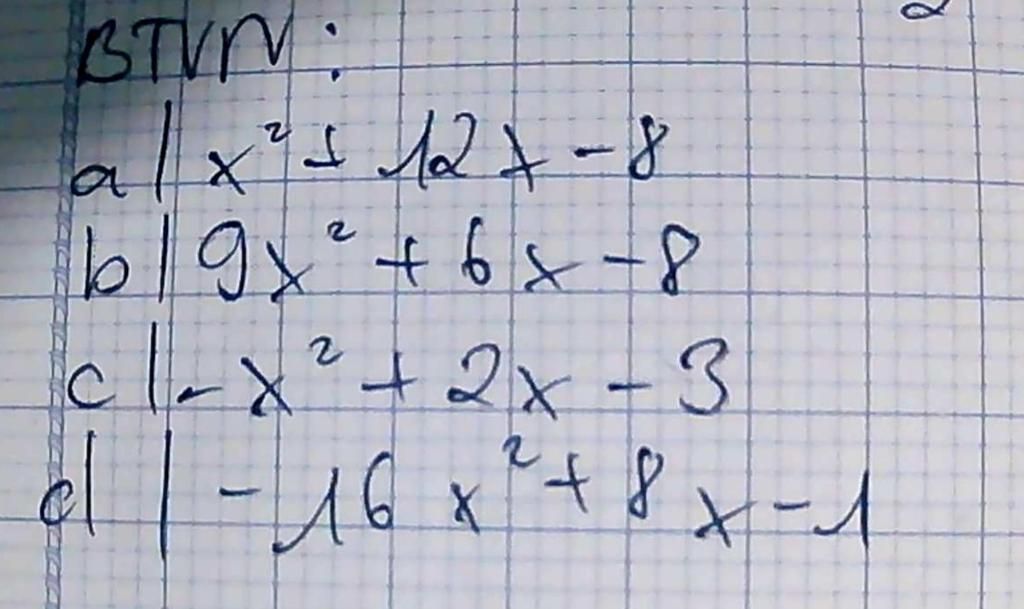 BTVN:
a| x² + 12x - 8
b| 9x² + 6x - 8
c| -x² + 2x - 3
d| -16x² + 8x - 1